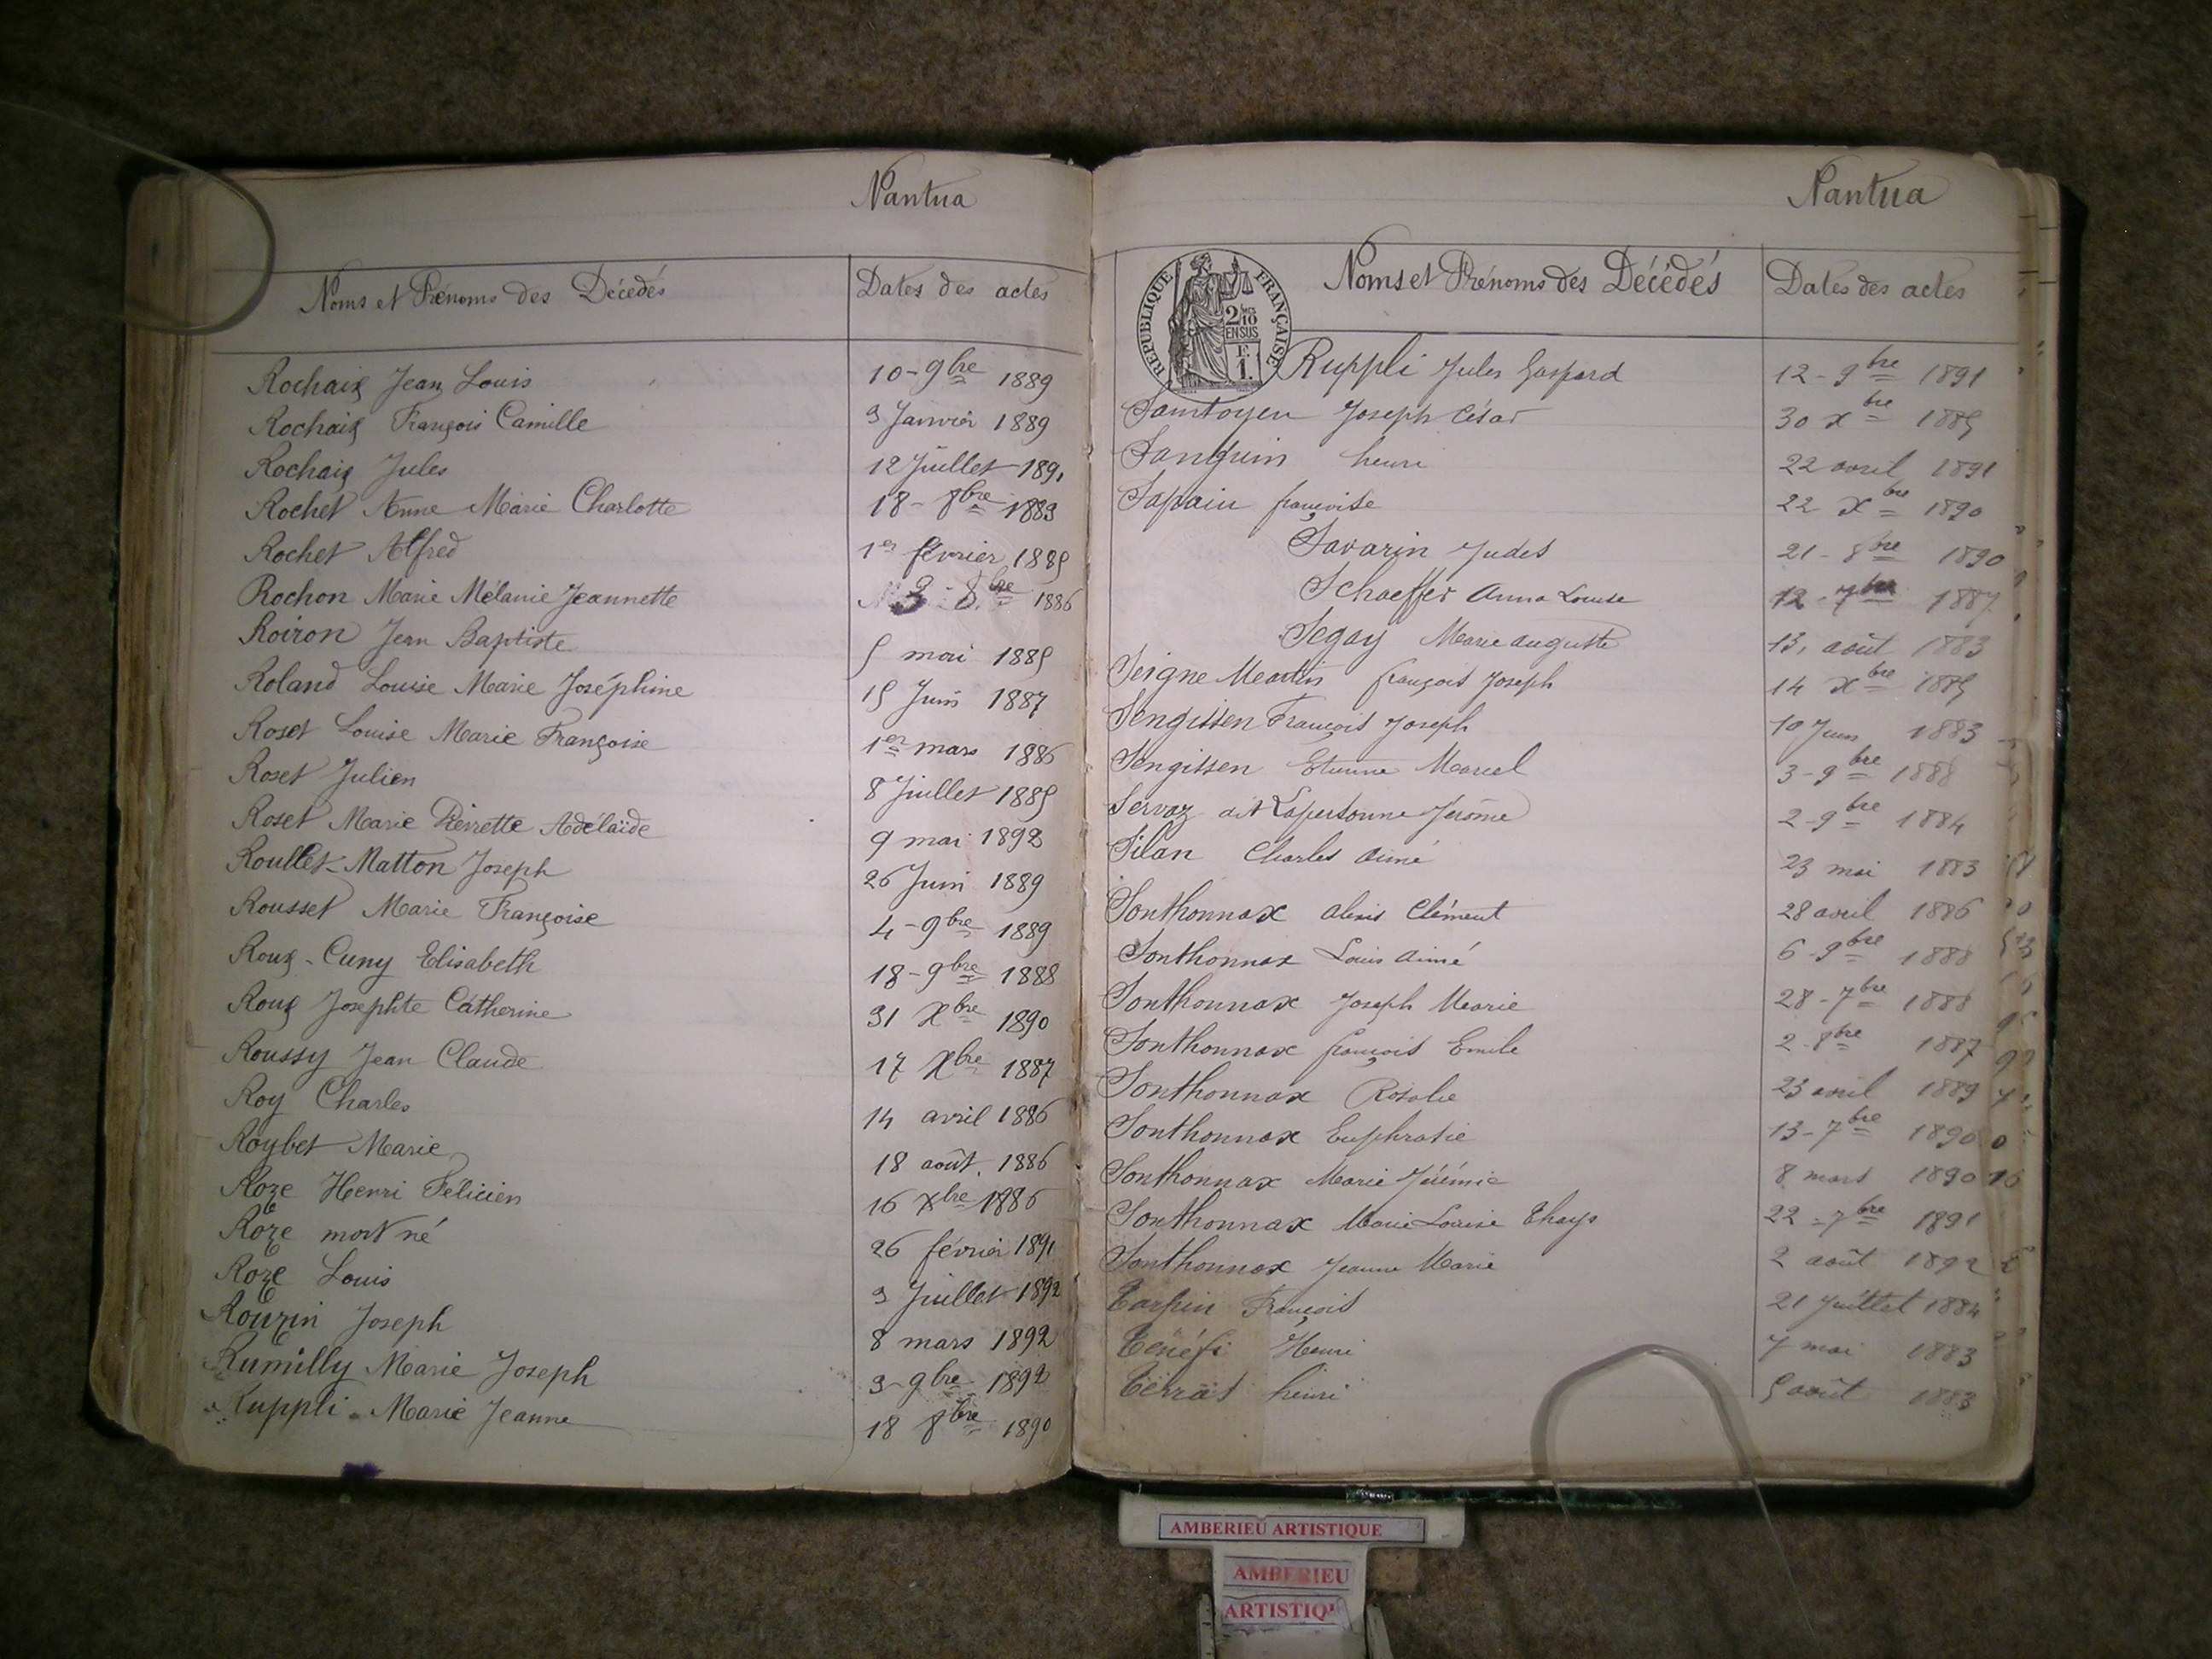 Nantua
Noms et Prénoms des Décédés Dates des actes
Rochaix Jean Louis 10 - 9bre 1889
Rochaix François Camille 3 Janvier 1889
Rochaix Jules 12 Juillet 1891
Rochet Anne Marie Charlotte 18 - 8bre 1883
Rochet Alfred 1er février 1885
Rochon Marie Mélanie Jeannette 3 - 8bre 1886
Roiron Jean Baptiste 5 mai 1885
Roland Louise Marie Joséphine 15 Juin 1887
Roset Louise Marie Françoise 1er mars 1886
Roset Julien 8 Juillet 1885
Roset Marie Pierrette Adelaïde 9 mai 1892
Roullet-Matton Joseph 26 Juin 1889
Rousset Marie Françoise 4 - 9bre 1889
Roux - Cuny Elisabeth 18 - 9bre 1888
Roux Josephte Catherine 31 Xbre 1890
Roussy Jean Claude 17 Xbre 1887
Roy Charles 14 avril 1886
Roybet Marie 18 août. 1886
Roze Henri Félicien 16 Xbre 1886
Roze mort né 26 février 1891
Roze Louis 3 Juillet 1892
Rouzin Joseph 8 mars 1892
Rumilly Marie Joseph 3 - 9bre 1892
Ruppli Marie Jeanne 18 8bre 1890
Nantua
Noms et Prénoms des Décédés Dates des actes
REPUBLIQUE FRANÇAISE
2/10
EN SUS
F.
1.
Ruppli Jules Gaspard 12 - 9bre 1891
Samtoyen Joseph César 30 Xbre 1885
Sanguin henri 22 avril 1891
Sapain françoise 22 Xbre 1890
Savarin Judes 21 - 8bre 1890
Schaeffer Anna Louise 12 - 7bre 1887
Segay Marie auguste 13, août 1883
Seigne Martin françois Joseph 14 Xbre 1885
Sengissen François Joseph 10 Juin 1883
Sengissen Etienne Marcel 3 - 9bre 1888
Servoz dit Lapersonne Jérôme 2 - 9bre 1884
Silan Charles Aimé 23 mai 1883
Sonthonnax alexis Clément 28 avril 1886
Sonthonnax Louis Aimé 6 - 9bre 1888
Sonthonnax Joseph Marie 28 - 7bre 1888
Sonthonnax françois Emile 2 - 8bre 1887
Sonthonnax Rosalie 23 avril 1889
Sonthonnax Euphrasie 13 - 7bre 1890
Sonthonnax Marie Jérémie 8 mars 1890
Sonthonnax Marie Louise 22 - 7bre 1891
Sonthonnax Jeanne Marie 2 août 1892
Tarpin François 21 Juillet 1884
Ténéfi Henri 7 mai 1883
Terras henri 5 août 1883
AMBERIEU ARTISTIQUE
AMBERIEU
ARTISTIQU